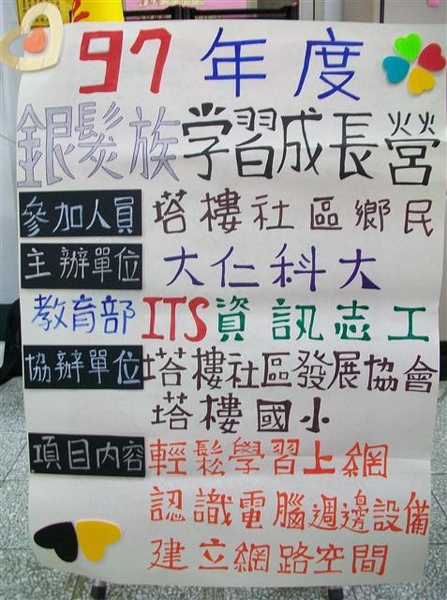 97年度
銀髮族學習成長營
參加人員 塔樓社區鄉民
主辦單位 大仁科大
教育部ITS資訊志工
協辦單位 塔樓社區發展協會
塔樓國小
項目內容 輕鬆學習上網
認識電腦週邊設備
建立網路空間